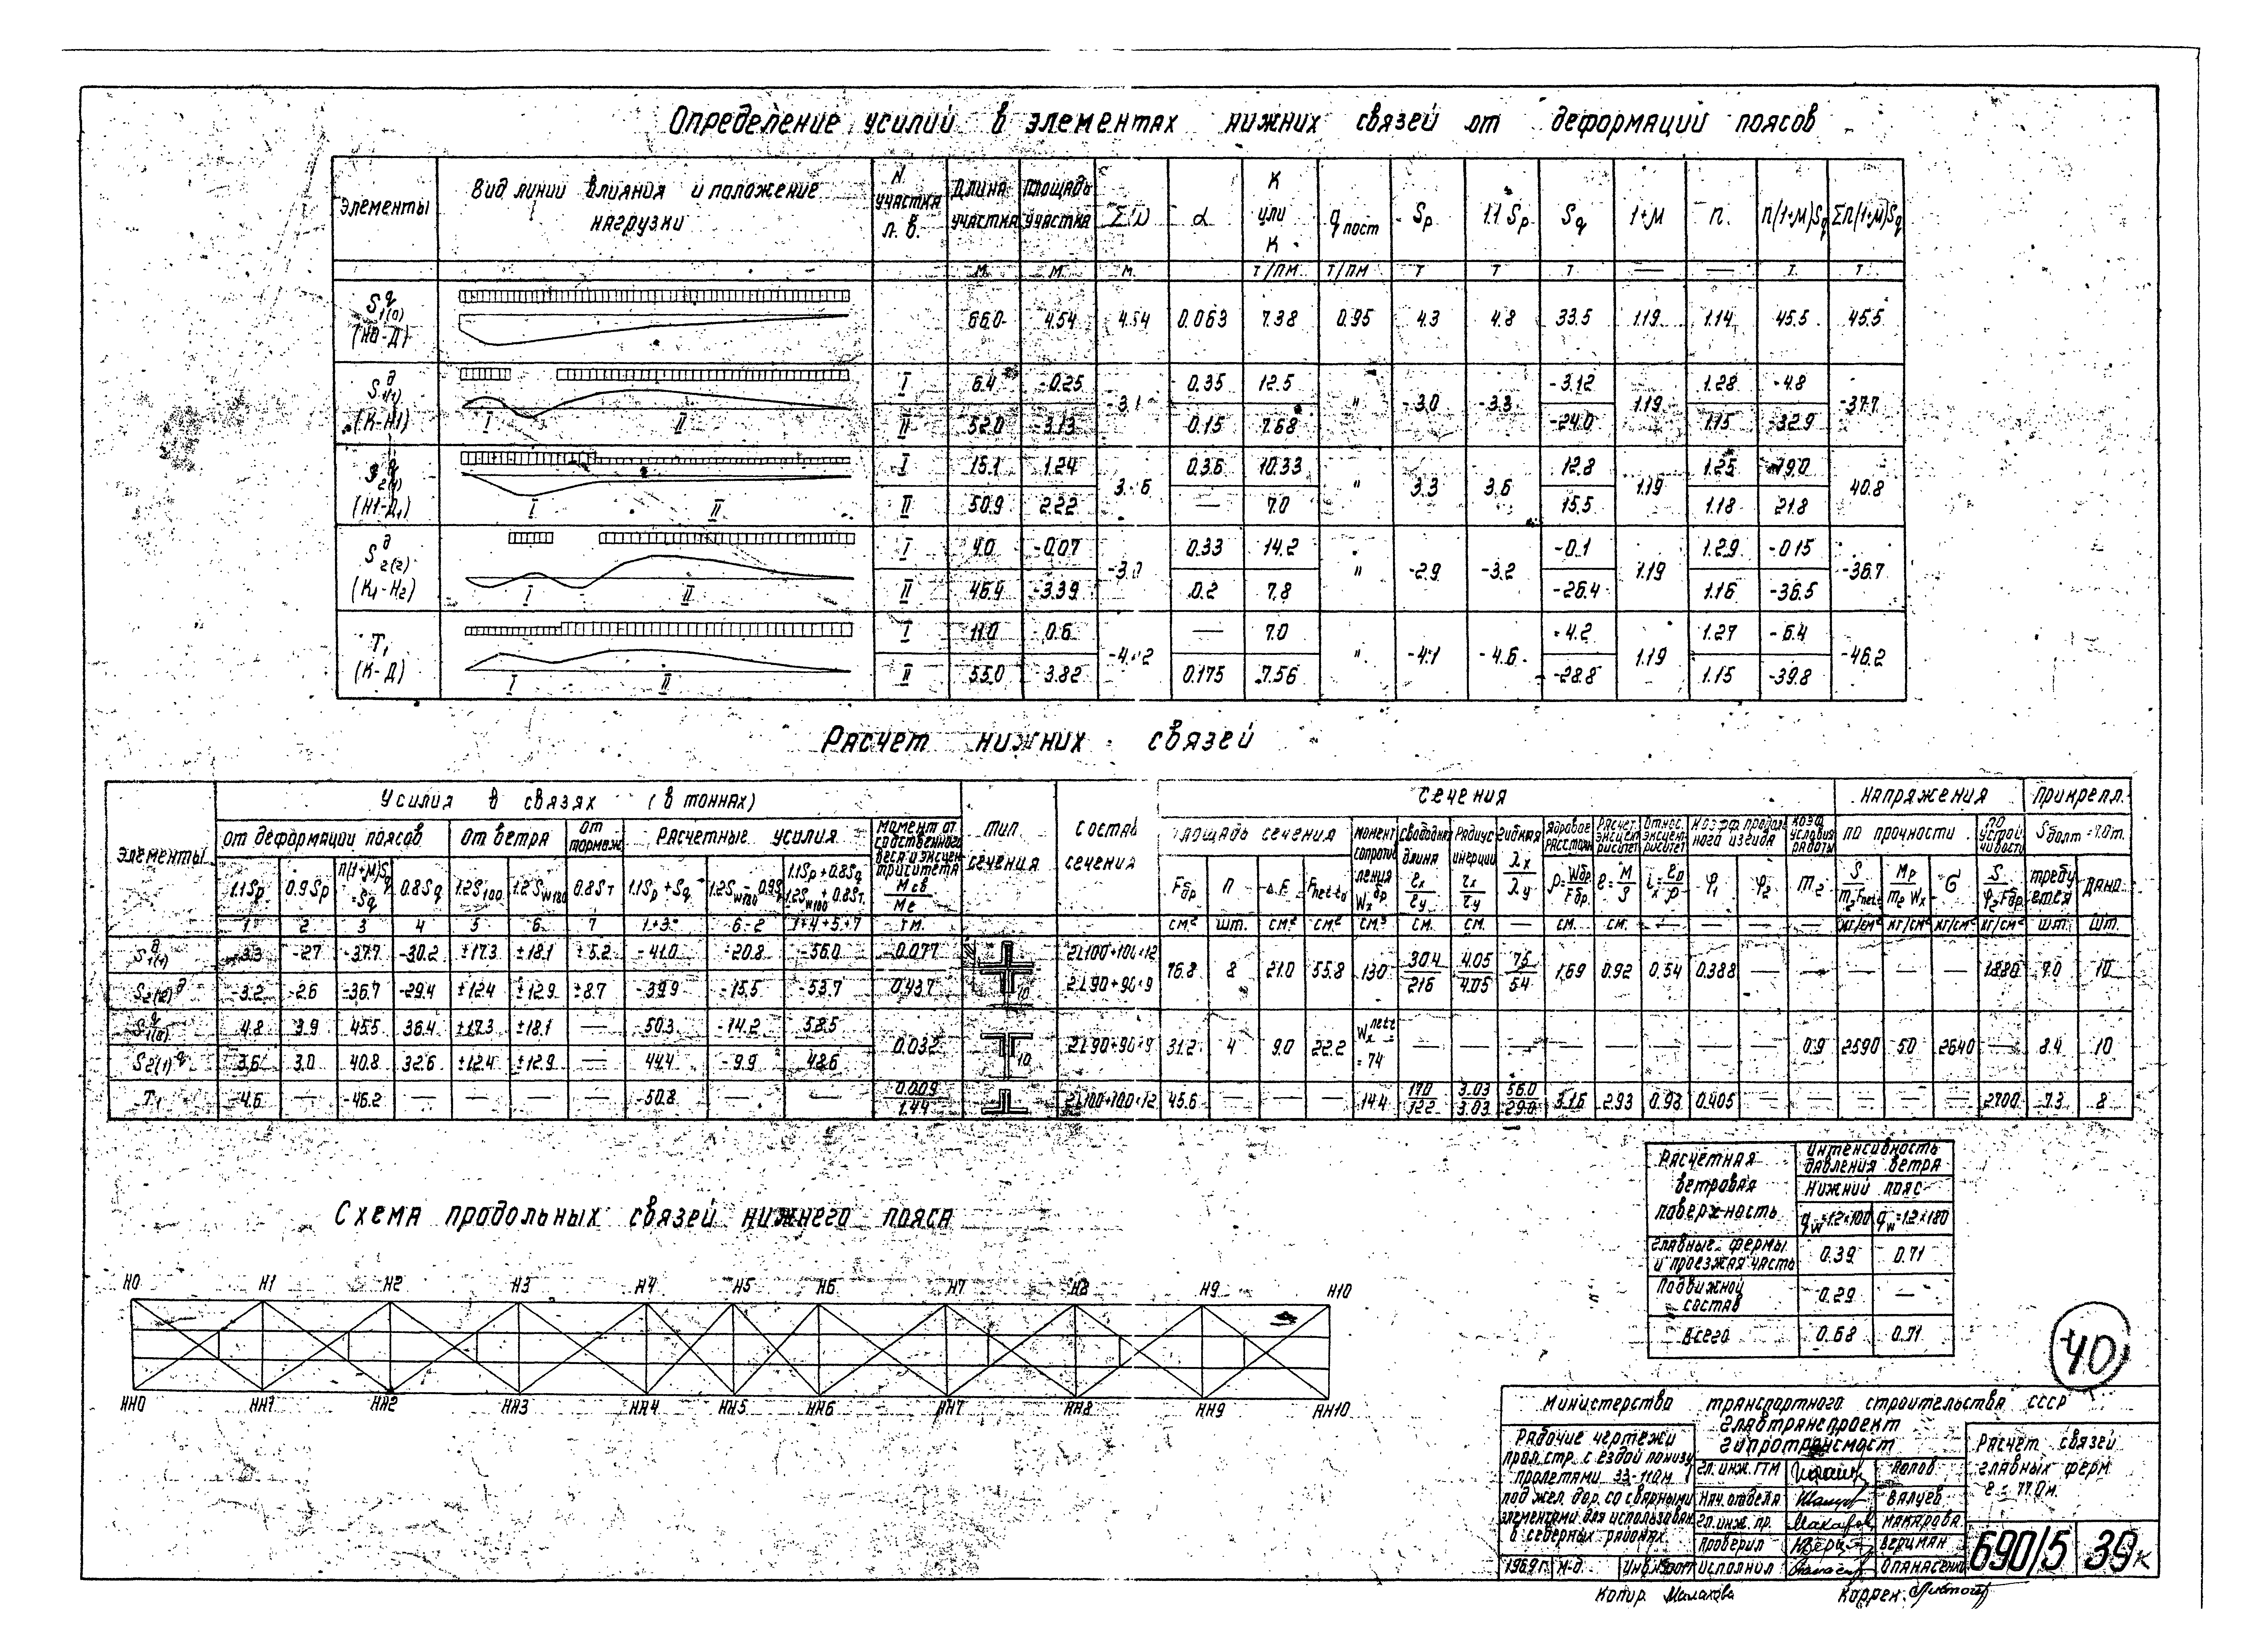 Определение усилий в элементах нижних связей от деформации поясов
Элементы Вид линии влияния и положение нагрузки N участка л.в. Длина участка Площадь участка Σω α К или К q пост Sp 1.1 Sp Sq 1+м п. п(1+м)Sq Σп(1+м)Sq
м. м. м. т/пм т/пм т т т. — — т. т.
S q 1(0) (Н0-Д) 66.0 4.54 4.54 0.063 7.38 0.95 4.3 4.8 33.5 1.19 1.14 45.5 45.5
S д 1(1) (К-Н1) I 6.4 -0.25 0.35 12.5 " -3.0 -3.3 -3.12 1.19 1.28 -4.8 -37.7
I II II 52.0 -3.13 0.15 7.68 -24.0 1.15 -32.9
2(1) (Н1-Д1) I 15.1 1.24 0.36 10.33 " 3.3 3.6 12.8 1.19 1.25 19.0 40.8
I II II 50.9 2.22 — 7.0 15.5 1.18 21.8
S д 2(2) (К1-Н2) I 4.0 -0.07 0.33 14.2 " -2.9 -3.2 -0.1 1.19 1.29 -0.15 -36.7
I II II 46.4 -3.39 0.2 7.8 -26.4 1.16 -36.5
Т1 (К-Д) I 11.0 0.6 — 7.0 " -4.1 -4.6 -4.2 1.19 1.27 -6.4 -46.2
I II II 55.0 3.82 0.175 7.56 -28.8 1.15 -39.8
Расчет нижних связей
Элементы Усилия в связях (в тоннах) Тип сечения Состав сечения Сечения Напряжения Прикрепл.
От деформации поясов От ветра От тормож. Расчетные усилия Момент от собственного веса и эксцентриситета Площадь сечения Момент сопротивления Свободная длина Радиус инерции Гибкость Ядровое расстоян. Расчет. эксцентриситет Относ. эксцентриситет Коэф. продольного изгиба Коэф. условия работы по прочности по устойчивости Sболт=7.0т.
1.1Sp 0.9Sp п(1+м)Sq =Sq 0.8Sq 1.2S100 1.2Sw180 0.8Sт 1.1Sp+Sq 1.2Sw180-0.9Sp 1.1Sp+0.8Sq 1.2Sw100+0.8Sт Мсв Ме Fбр п ΔF Fnetto Wx бр lx ly rx ry λx λy ρ=Wбр/Fбр e=M/S i=e0/ρ φ1 φ2 m2 S/m2Fnetto Mp/m2Wx σ S/φ2Fбр требуется Дано
1 2 3 4 5 6 7 1+3 6-2 1+4+5+7 тм. см² шт. см² см² см³ см. см. — см. см. — — — — кг/см² кг/см² кг/см² кг/см² шт. шт.
S1(1) д -3.3 -2.7 -37.7 -30.2 ±17.3 ±18.1 ±5.2 -41.0 -20.8 -56.0 -0.077 2L100+100×12
76.8 8 21.0 55.8 130 304 216 4.05 4.05 75 54 1.69 0.92 0.54 0.388 — — — — — 1880 7.0 10
S2(2) д -3.2 -2.6 -36.7 -29.4 ±12.4 ±12.9 ±8.7 -39.9 -15.5 -53.7 0.437 10 2L90+90×9
S1(0) q 4.8 3.9 45.5 36.4 ±17.3 ±18.1 — 50.3 -14.2 58.5
0.032 10 2L90+90×9 31.2 4 9.0 22.2 Wx netto = 74 — — — — — — — — 0.9 2590 50 2640 — 8.4 10
S2(1) q 3.6 3.0 40.8 32.6 ±12.4 ±12.9 — 44.4 -9.9 48.6
Т1 -4.6 — -46.2 — — — — -50.8 — — 0.009 1.44 2L100+100×12 45.6 — — — 14.4 170 122 3.03 3.03 56.0 29.0 3.16 2.93 0.93 0.405 — — — — — 2700 7.3 8
Расчетная ветровая поверхность Интенсивность давления ветра
Нижний пояс
qw=1.2×100 qw=1.2×180
Главные фермы и проезжая часть 0.39 0.71
Подвижной состав 0.29 —
Всего 0.68 0.71
Схема продольных связей нижнего пояса
Н0 Н1 Н2 Н3 Н4 Н5 Н6 Н7 Н8 Н9 Н10
НН0 НН1 НН2 НН3 НН4 НН5 НН6 НН7 НН8 НН9 НН10
40
Министерства транспортного строительства СССР
Главтранспроект
Гипротрансмост
Рабочие чертежи
прол. стр. с ездой понизу
пролетами 33-110м
под жел. дор. со сварными
элементами для использован.
в северных районах
Гл. инж. ГТМ Попов
Нач. отдела Валуев
Гл. инж. пр. Макарова
Проверил Верцман
1969г. Н-д. Исполнил Опанасенко
Расчет связей
главных ферм
ℓ = 77.0м.
690/5 39к
Копир. Малахова Коррек.